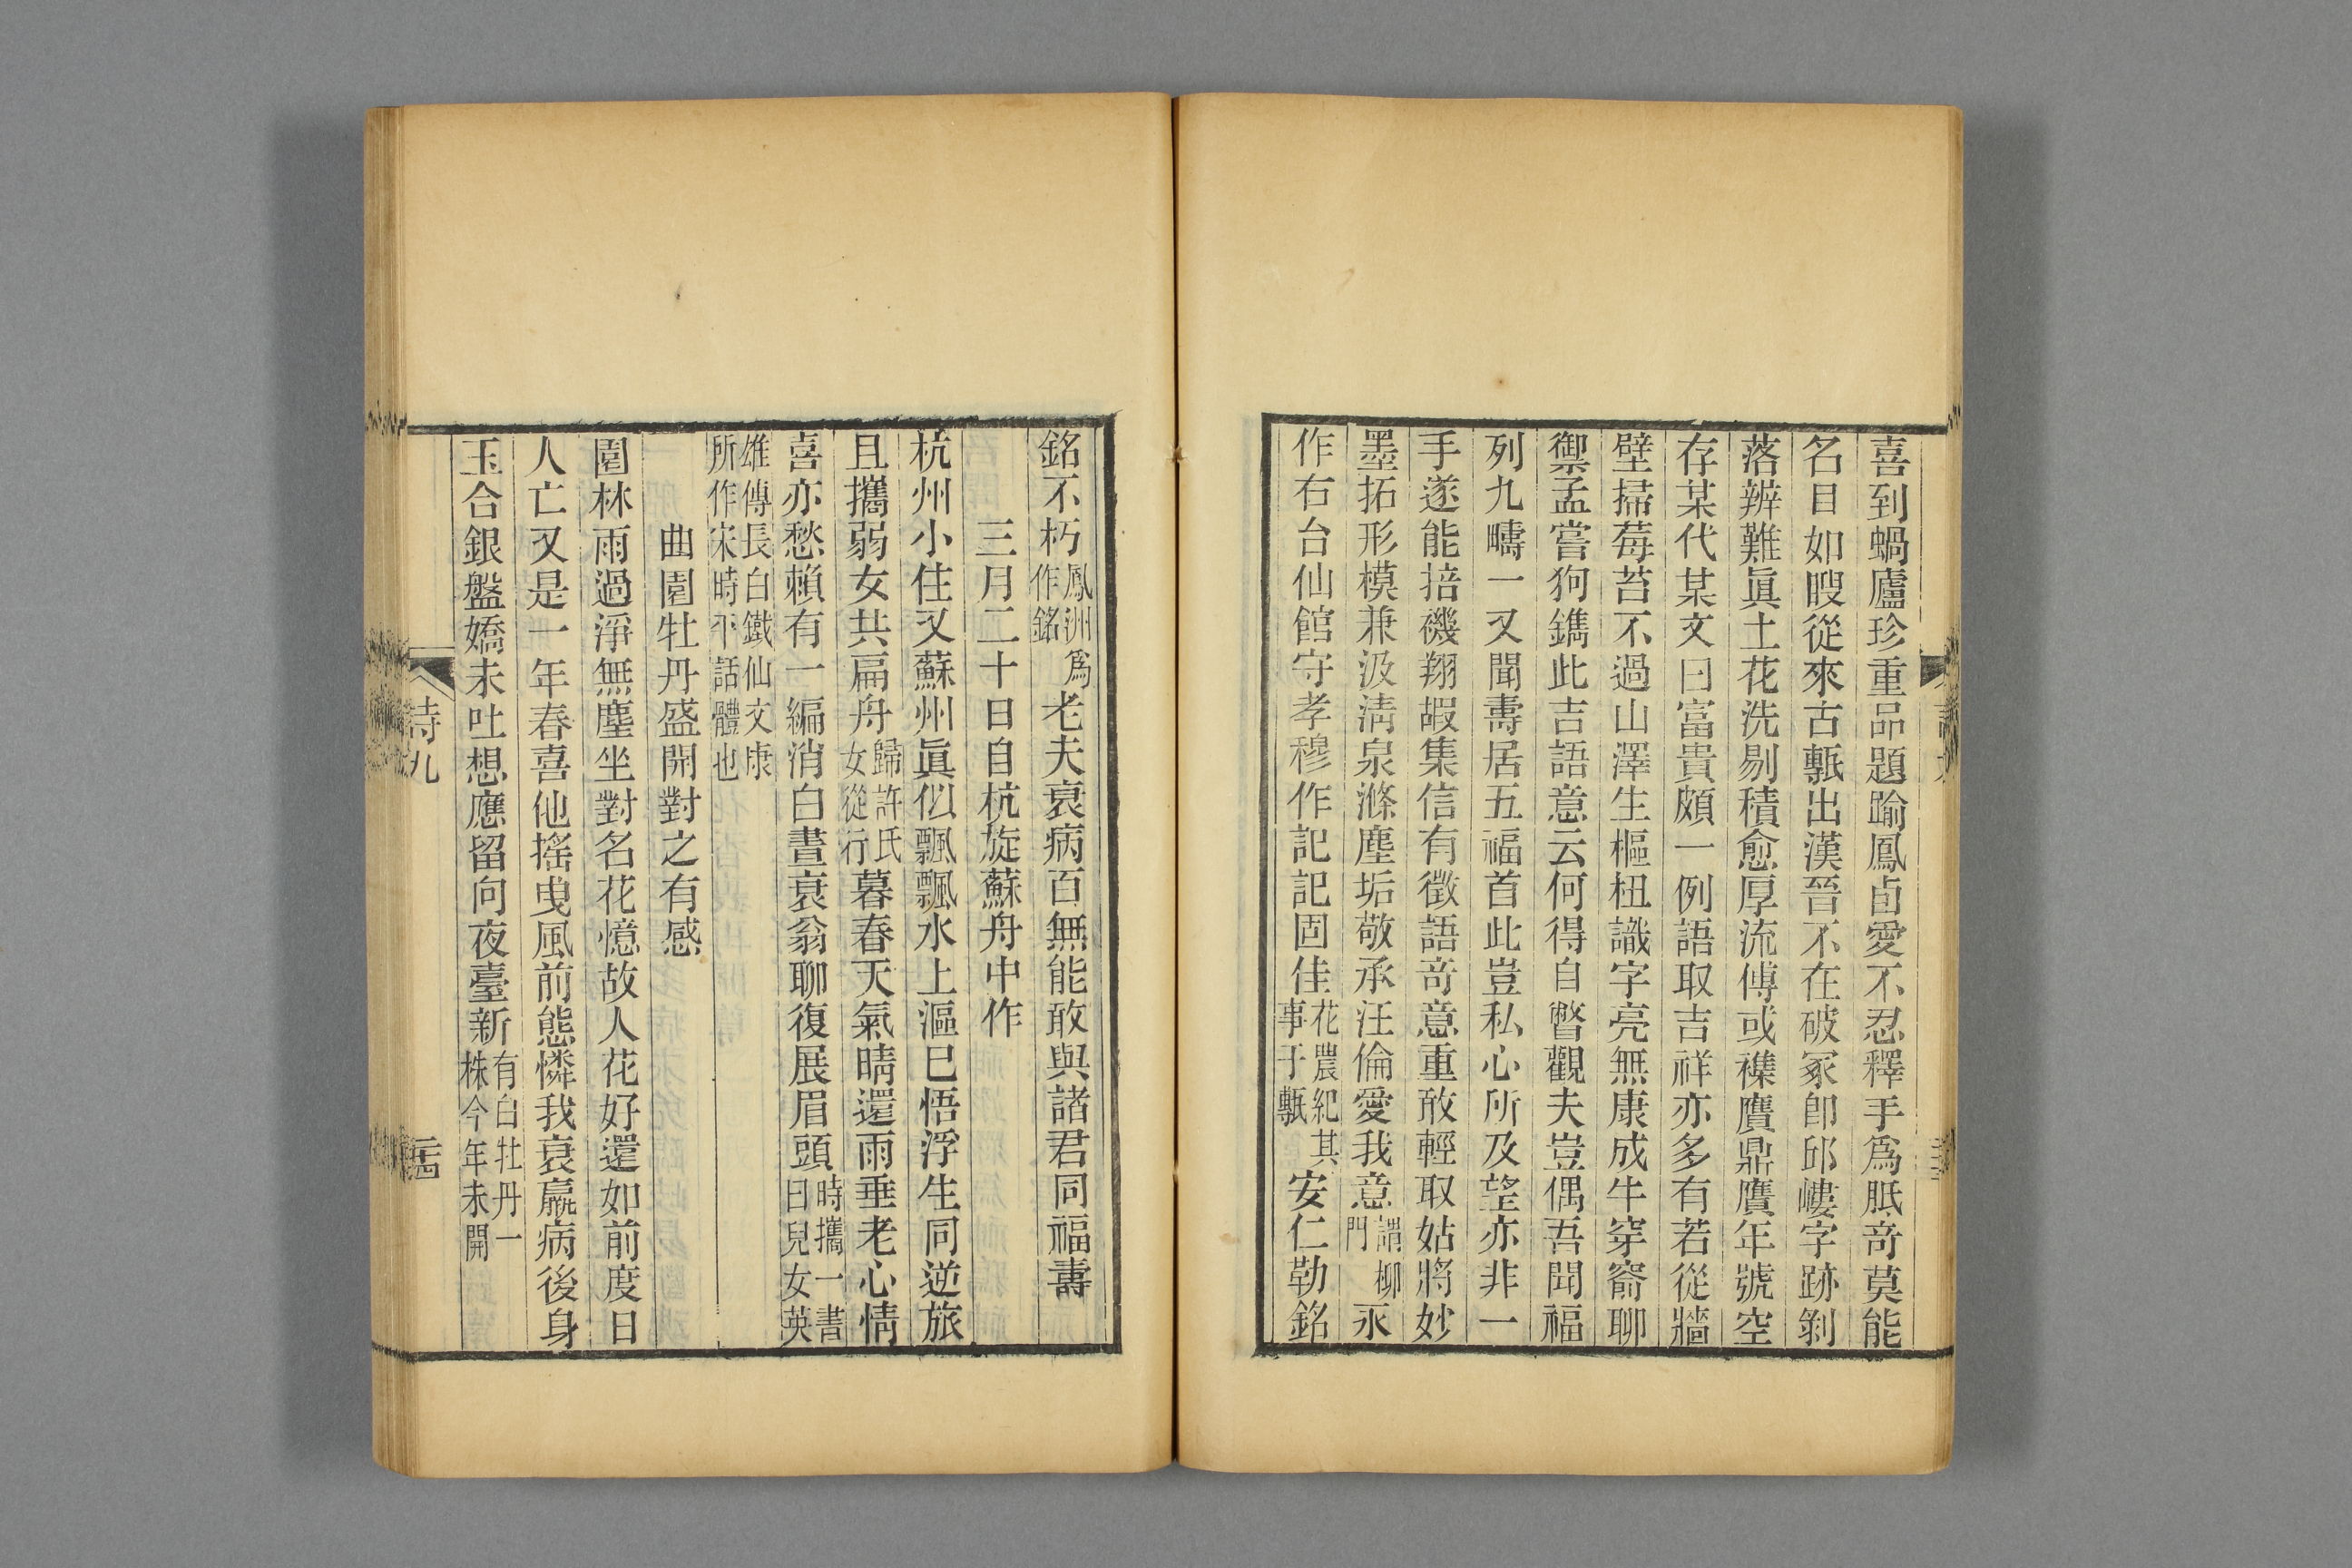 喜到蝸廬珍重品題踰鳳卣愛不忍釋手爲胝奇莫能
名目如瞍從來古甎出漢晉不在破冢卽邱嶁字跡剝
落辨難眞土花洗剔積愈厚流傳或襍贋鼎贋年號空
存某代某文曰富貴頗一例語取吉祥亦多有若從牆
壁掃莓苔不過山澤生樞杻識字亮無康成牛穿窬聊
禦孟嘗狗鐫此吉語意云何得自瞥觀夫豈偶吾聞福
列九疇一又聞壽居五福首此豈私心所及望亦非一
手遂能掊磯翔嘏集信有徵語奇意重敢輕取姑將妙
墨拓形模兼汲淸泉滌塵垢敬承汪倫愛我意謂柳門永
作右台仙館守孝穆作記記固佳花農紀其事于甎安仁勒銘
銘不朽鳳洲爲作銘老夫衰病百無能敢與諸君同福壽
三月二十日自杭旋蘇舟中作
杭州小住又蘇州眞似飄飄水上漚已悟浮生同逆旅
且攜弱女共扁舟歸許氏女從行暮春天氣晴還雨垂老心情
喜亦愁賴有一編消白晝衰翁聊復展眉頭時攜一書曰兒女英
雄傳長白鐵仙文康所作宋時平話體也
曲園牡丹盛開對之有感
園林雨過淨無塵坐對名花憶故人花好還如前度日
人亡又是一年春喜他搖曳風前態憐我衰羸病後身
玉合銀盤嬌未吐想應留向夜臺新有白牡丹一株今年未開
詩九